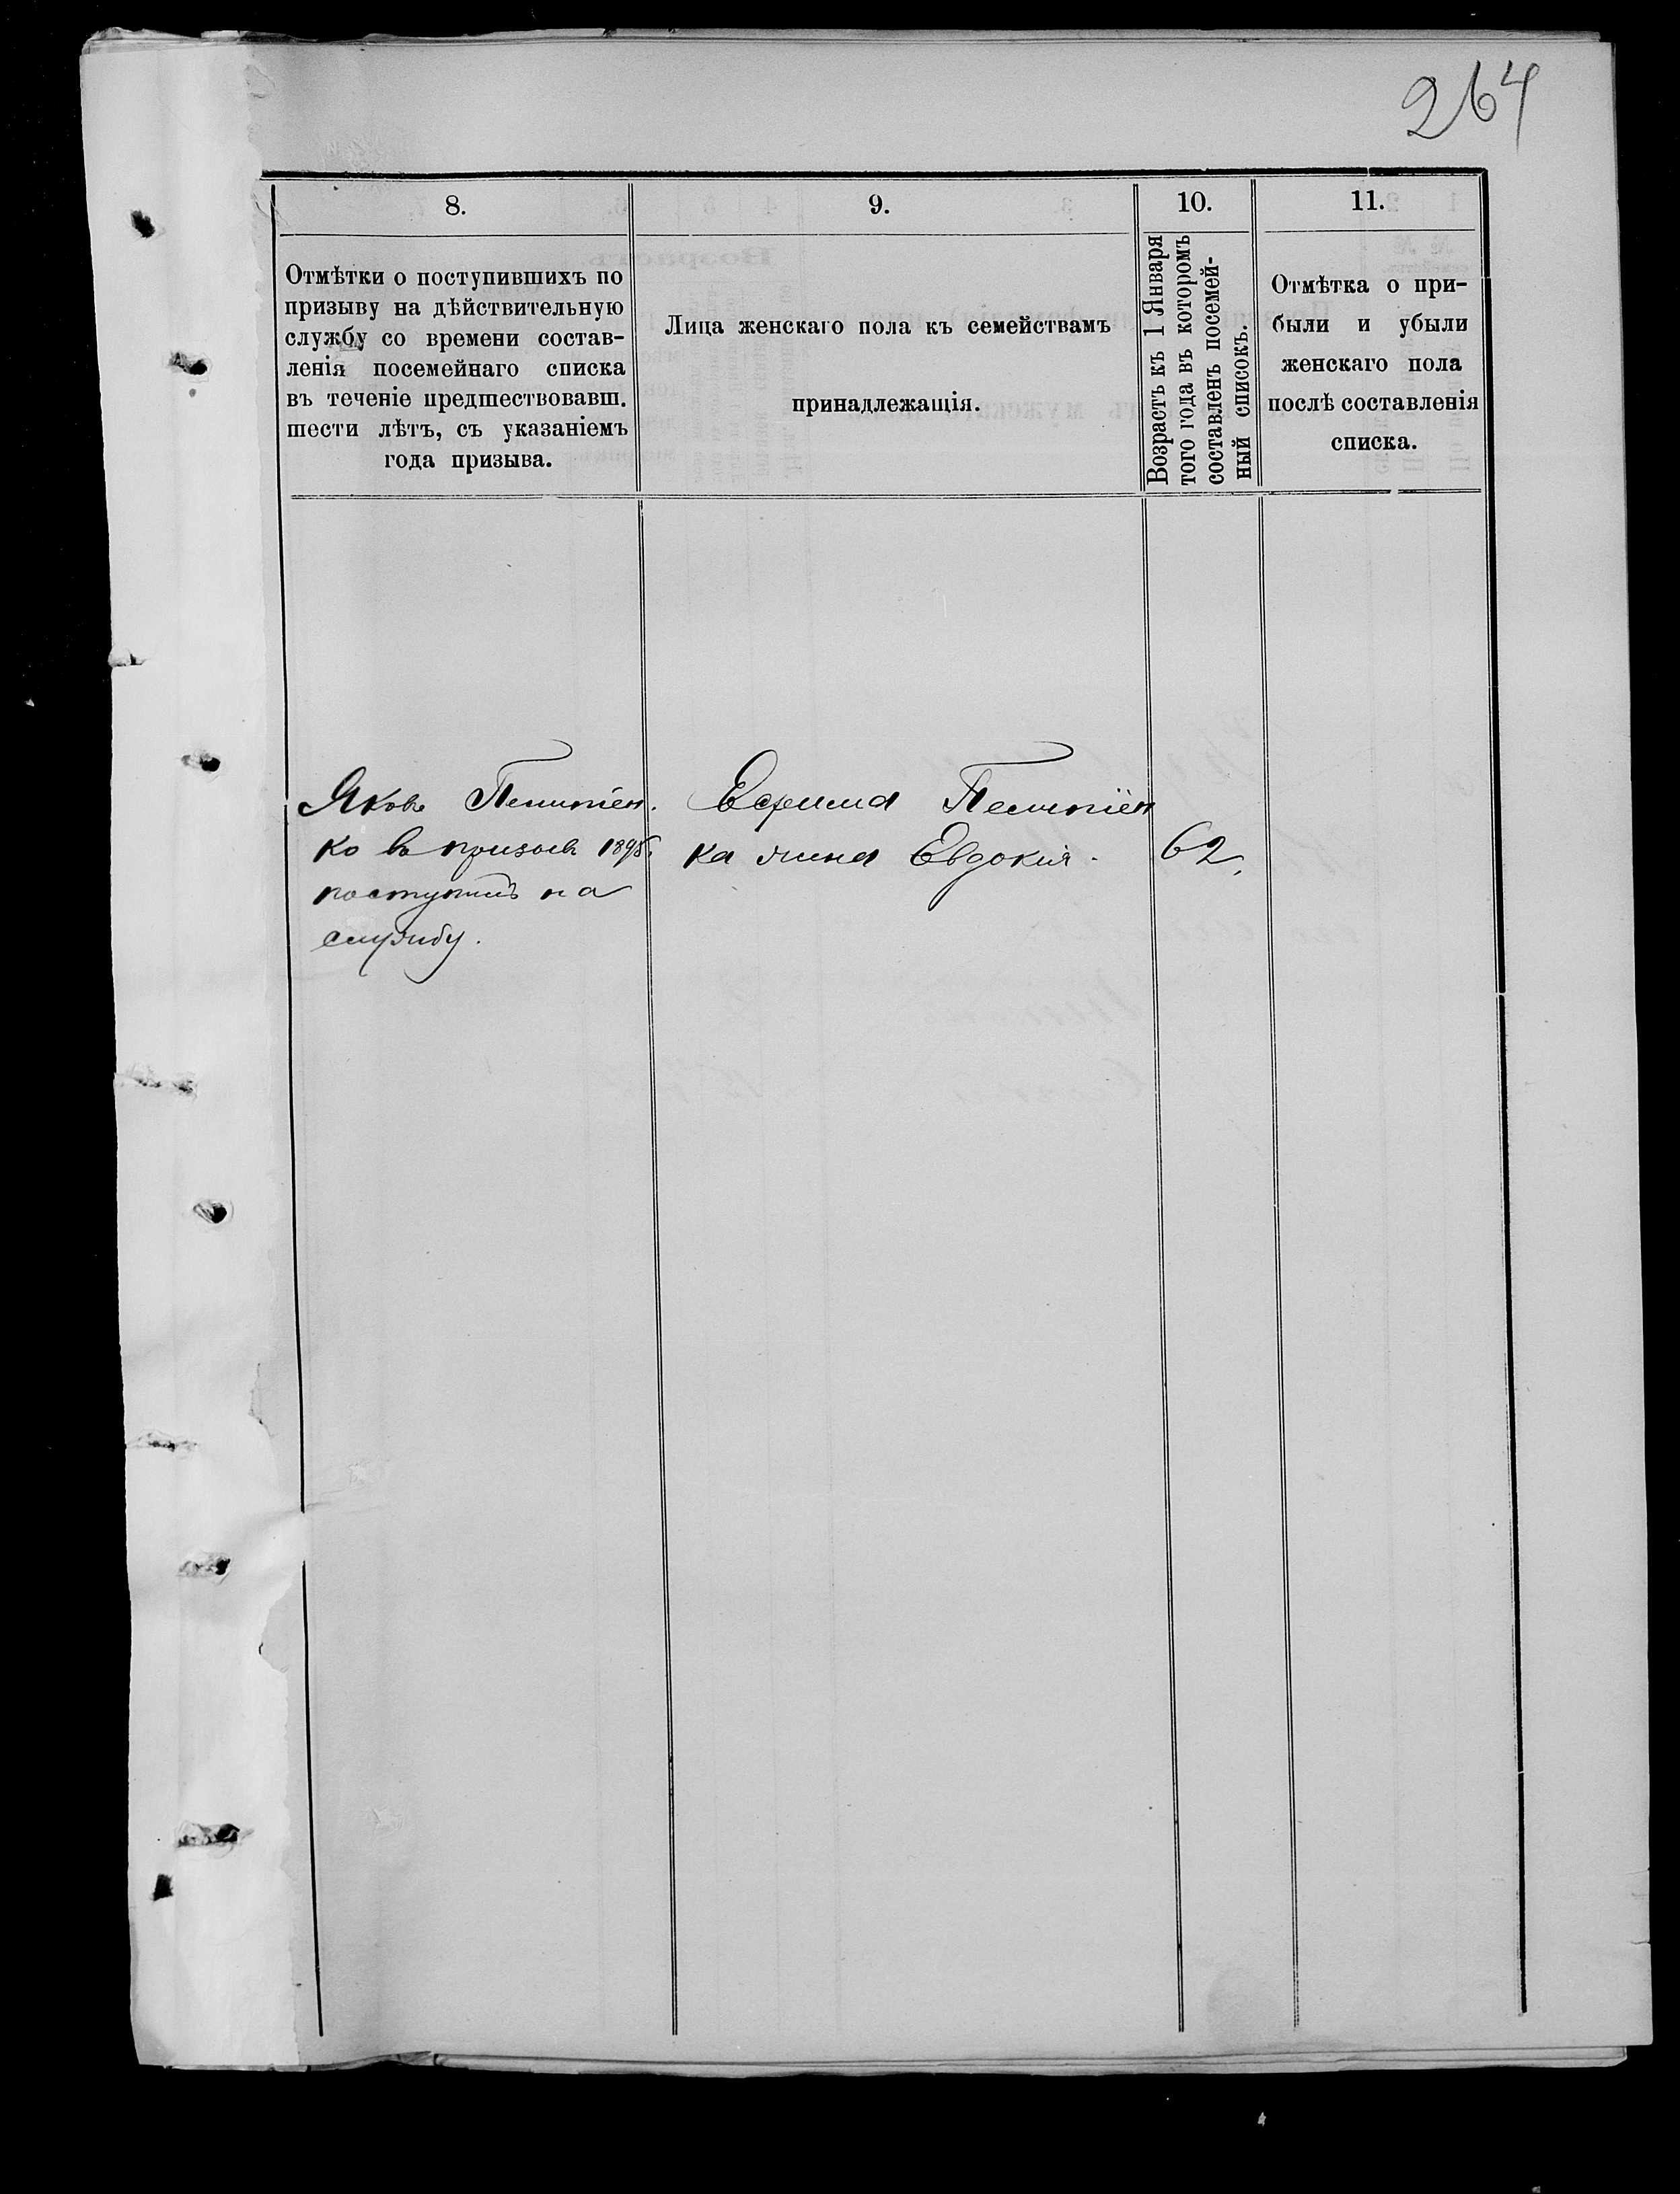 264
8.
9.
10.
11.
Отмѣтки о поступившихъ по
призыву на дѣйствительную
службу со времени состав-
ленія посемейнаго списка
въ теченіе предшествовавш.
шести лѣтъ, съ указаніемъ
года призыва.
Лица женскаго пола къ семействамъ
принадлежащія.
Возрастъ къ 1 Января
того года въ которомъ
составленъ посемей-
ный списокъ.
Отмѣтка о при-
были и убыли
женскаго пола
послѣ составленія
списка.
Яковъ
ко въ призывъ
поступилъ на
службу.
Ефима
ка жена Евдокія.
62.